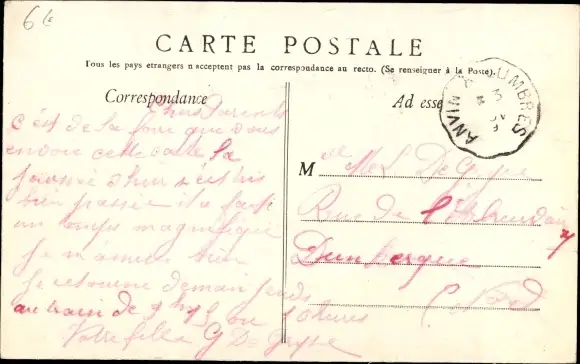 6 fe
CARTE POSTALE
Tous les pays etrangers n acceptent pas la correspondance au recto. (Se renseigner à la Poste).
Correspondance
Ad esse
ANVIN A LUMBRES
Chers Parents
C'est de la foire que vous
envoie cette carte la
journée d'hier s'est
bien passée il a fait
un temps magnifique
Je m'amuse bien
Je retourne demain jeudi
au train de 9 h ou 10 heures
Votre fille G De Guyse
M
De Guyse
Rue de
Dunkerque
Nord